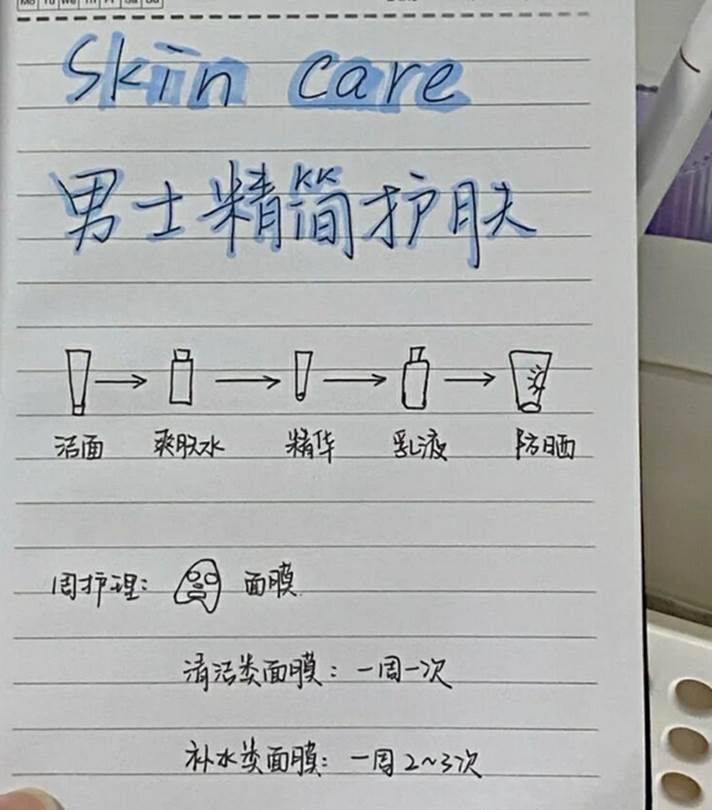 Mo Tu We Th Fr Sa Su
Skin care
男士精简护肤
洁面 爽肤水 精华 乳液 防晒
周护理: 面膜
清洁类面膜: 一周一次
补水类面膜: 一周2~3次